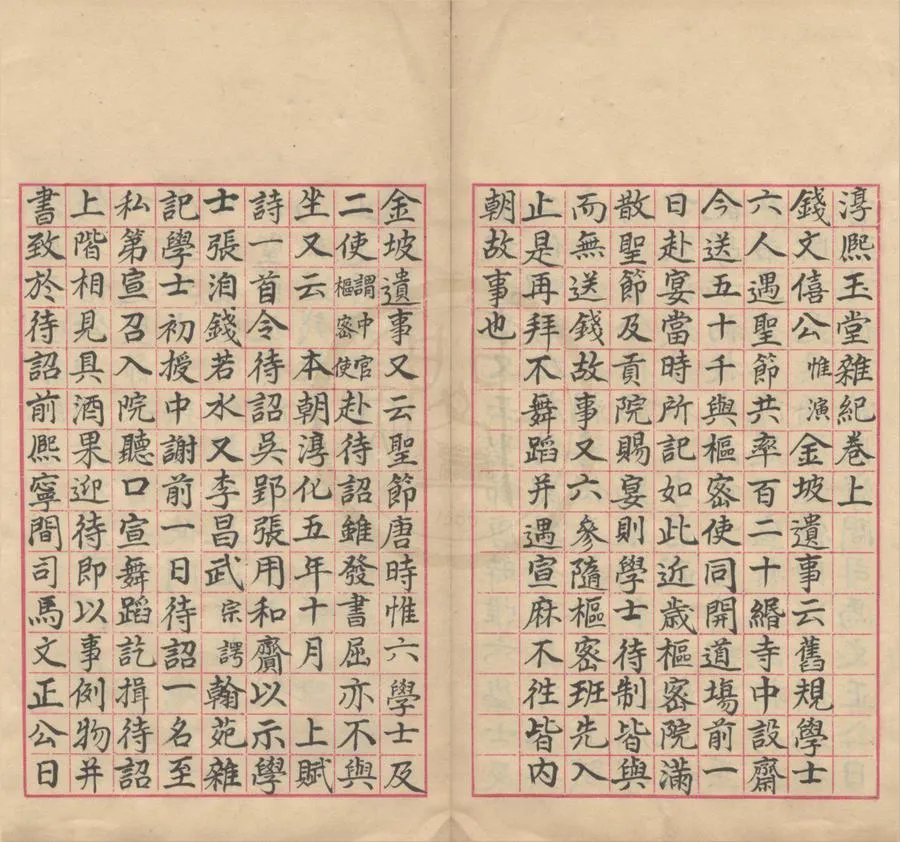 淳熈玉堂雜紀卷上
錢文僖公惟演金坡遺事云舊規學士
六人遇聖節共率百二十緡寺中設齋
今送五十千與樞密使同開道場前一
日赴宴當時所記如此近歲樞密院滿
散聖節及貢院賜宴則學士待制皆與
而無送錢故事又六參隨樞密班先入
止是再拜不舞蹈并遇宣麻不徃皆内
朝故事也
金坡遺事又云聖節唐時惟六學士及
二使謂中官樞密使赴待詔雖發書屈亦不與
坐又云 本朝淳化五年十月 上賦
詩一首令待詔吳郢張用和齎以示學
士張洎錢若水又李昌武宗諤翰苑雜
記學士初授中謝前一日待詔一名至
私第宣召入院聽口宣舞蹈訖揖待詔
上階相見具酒果迎待即以事例物并
書致於待詔前熈寧間司馬文正公日